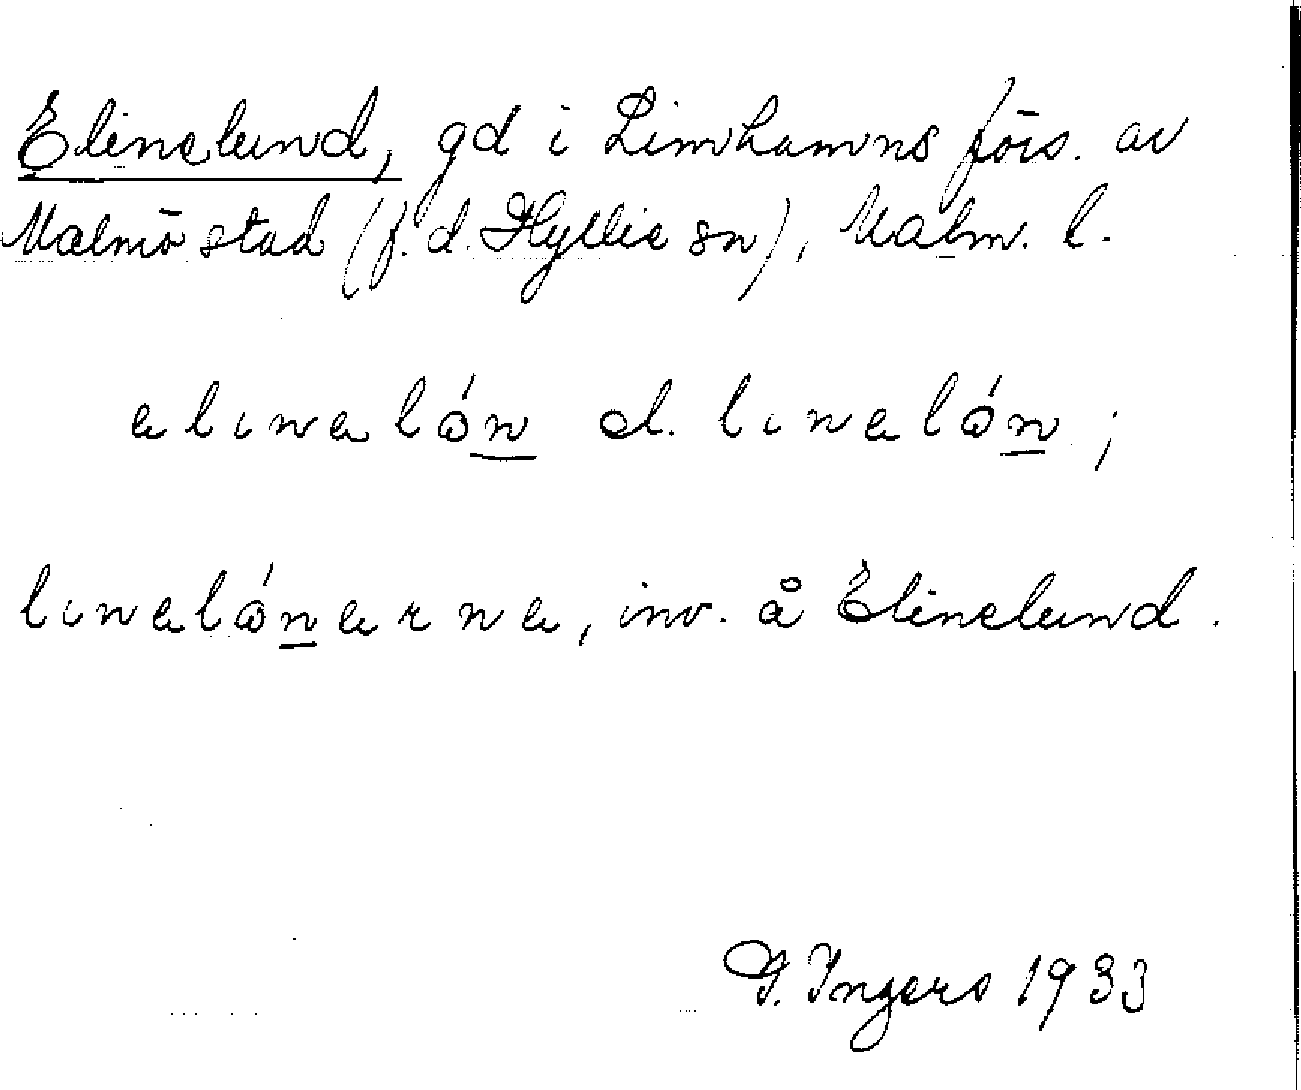 Elinelund, gd i Limhamns förs. av
Malmö stad (f. d. Hyllie sn), Malm. l.
elınelón el. lınelón;
lınelónerne, inv. å Elinelund.
G. Ingers 1933